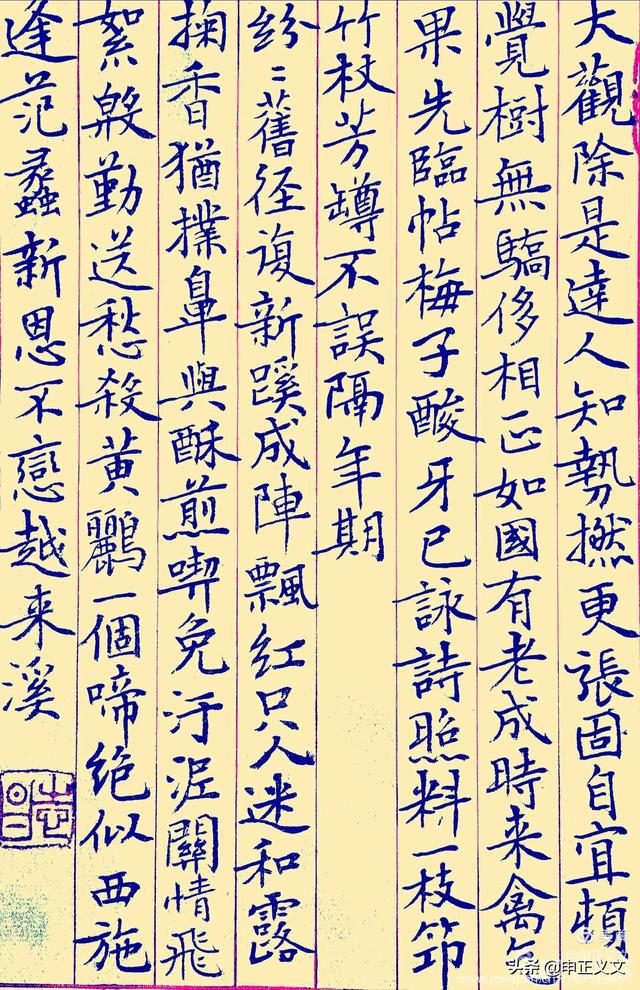 大觀除是達人知勢撚更張固自宜頓
覺樹無驕侈相正如國有老成時来禽与
果先臨帖梅子酸牙已詠詩照料一枝筇
竹杖芳罇不誤隔年期
紛〻舊径復新蹊成陣飄紅只人迷和露
掬香猶撲鼻與酥煎喫免汙泥關情飛
絮殷勤送愁殺黄鸝一個啼绝似西施
逢范蠡新恩不戀越来溪
头条 @申正义文